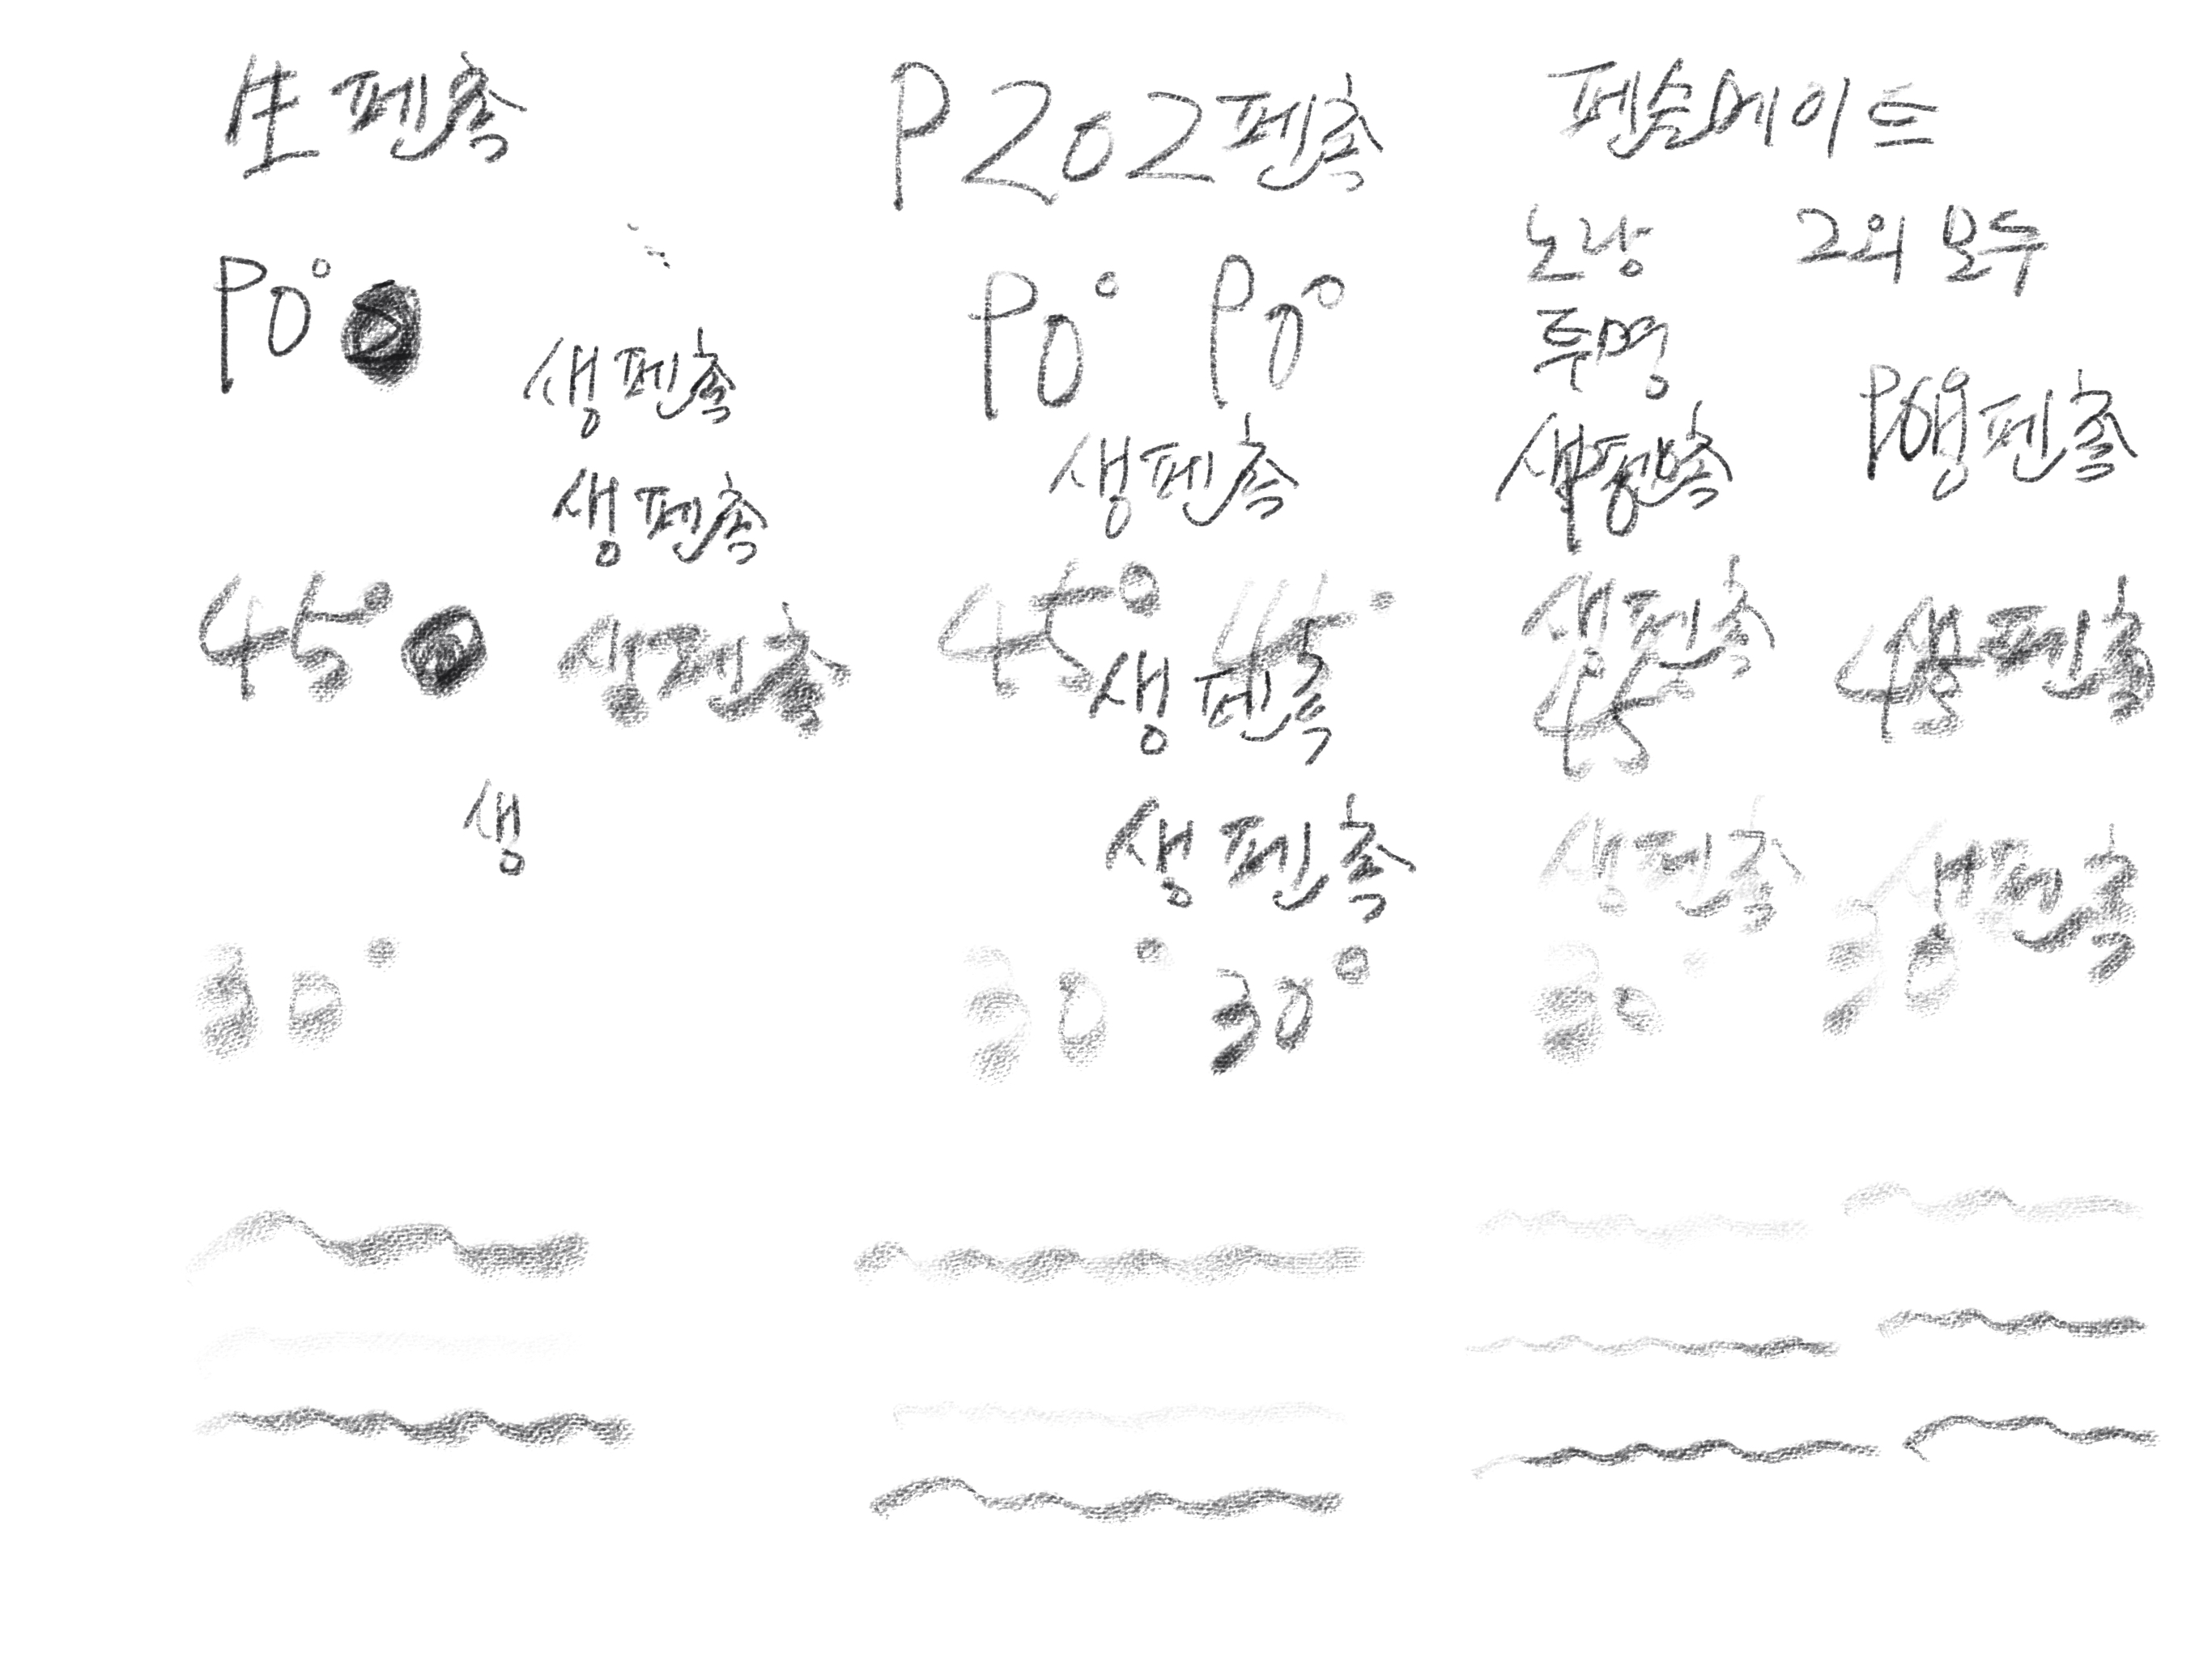 生펜촉
P202펜촉
펜슬메이트
노랑
2외 모두
투명
90°
90° 90°
생펜촉
생펜촉
생펜촉
생펜촉
90°
생펜촉
45°
생펜촉
45° 45°
생펜촉
생펜촉
45
생펜촉
45
생
생펜촉
생펜촉
생펜촉
30°
30° 30°
30°
30